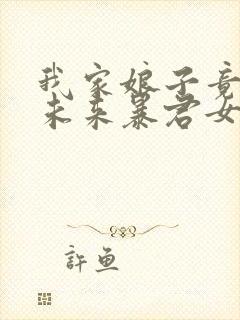 我家娘子竟
未来暴君女
許鱼